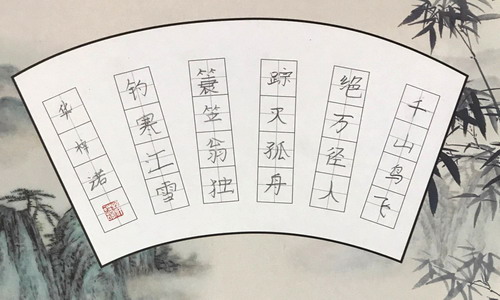 千山鸟飞
绝万径人
踪灭孤舟
蓑笠翁独
钓寒江雪
华梓诺